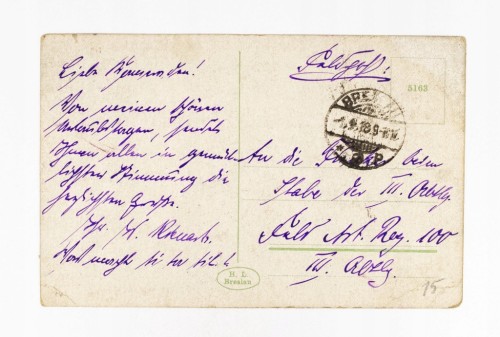 Liebe Kameraden!
Von meinen schönen
Urlaubstagen, sendet
Ihnen allen in gemüt-
lichster Stimmung die
herzlichsten Grüße
Ihr H.
Feldpost.
5163
BRESLAU
9-10V
An die beim
Stabe der III. Abtlg.
Feld Art. Reg. 100
III. Abtlg.
H. L.
Breslau
15-